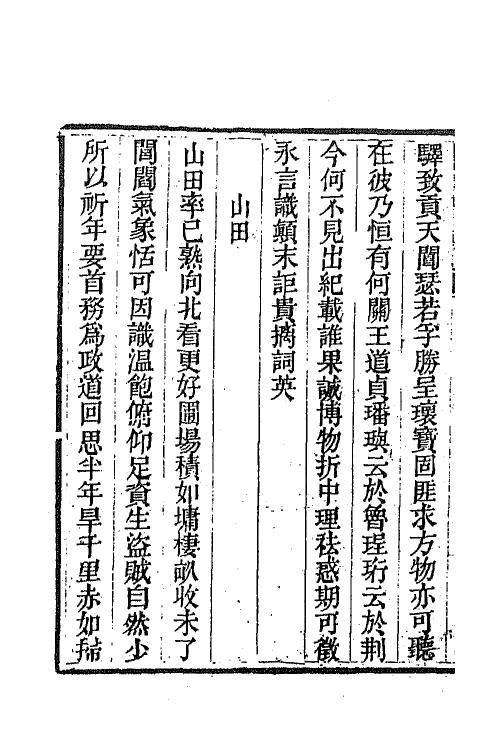 驛致貢天閶瑟若孚勝呈瓌寶固匪求方物亦可聽
在彼乃恒有何關王道貞璠璵云於魯珵珩云於荆
今何不見出紀載誰果誠博物折中理祛惑期可徵
永言識顛末詎貴摛詞英
山田
山田率已熟向北看更好圃場積如墉棲畝收未了
閭閻氣象恬可因識温飽俯仰足資生盜賊自然少
所以祈年要首務為政道回思半年旱千里赤如掃